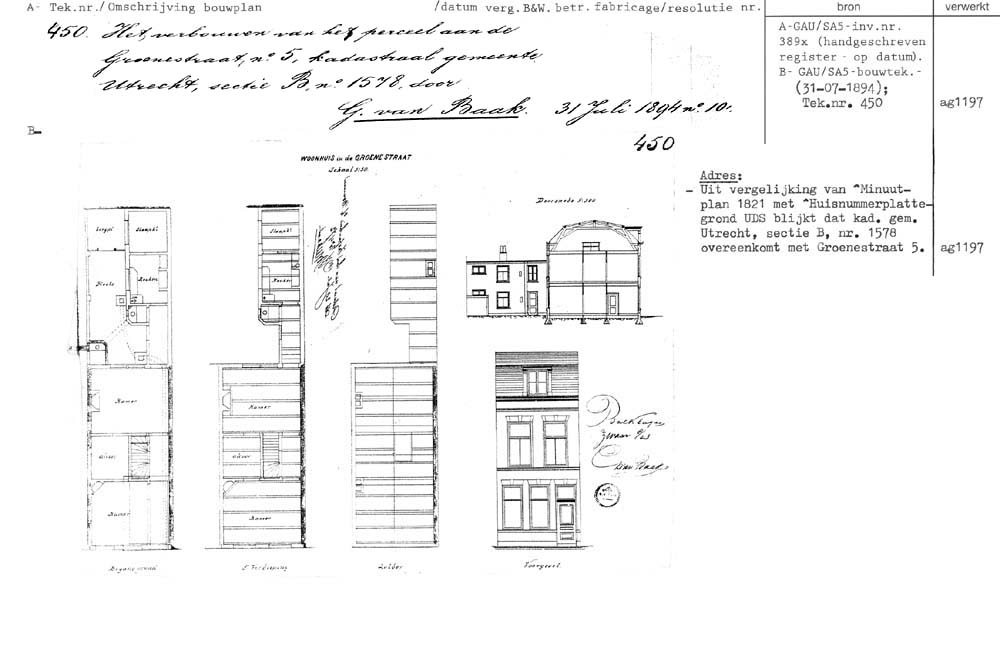 A- Tek.nr./Omschrijving bouwplan /datum verg.B&W. betr. fabricage/resolutie nr. bron verwerkt
450. Het verbouwen van het perceel aan de
Groenestraat, no. 5, kadastraal gemeente
Utrecht, sectie B, no. 1578, door
G. van Baak. 31 Juli 1894 no. 10.
A-GAU/SA5-inv.nr.
389x (handgeschreven
register - op datum).
B- GAU/SA5-bouwtek.-
(31-07-1894);
Tek.nr. 450 ag1197
B-
450
WOONHUIS in de GROENESTRAAT
Schaal 1:50.
Doorsnede 1:100
Adres:
- Uit vergelijking van ^Minuut-
plan 1821 met ^Huisnummerplatte-
grond UDS blijkt dat kad. gem.
Utrecht, sectie B, nr. 1578
overeenkomt met Groenestraat 5. ag1197
Keuken
Keuken
Kamer
Kamer
Kamer
Kamer
Begane grond
1e Verdieping
Zolder
Voorgevel.